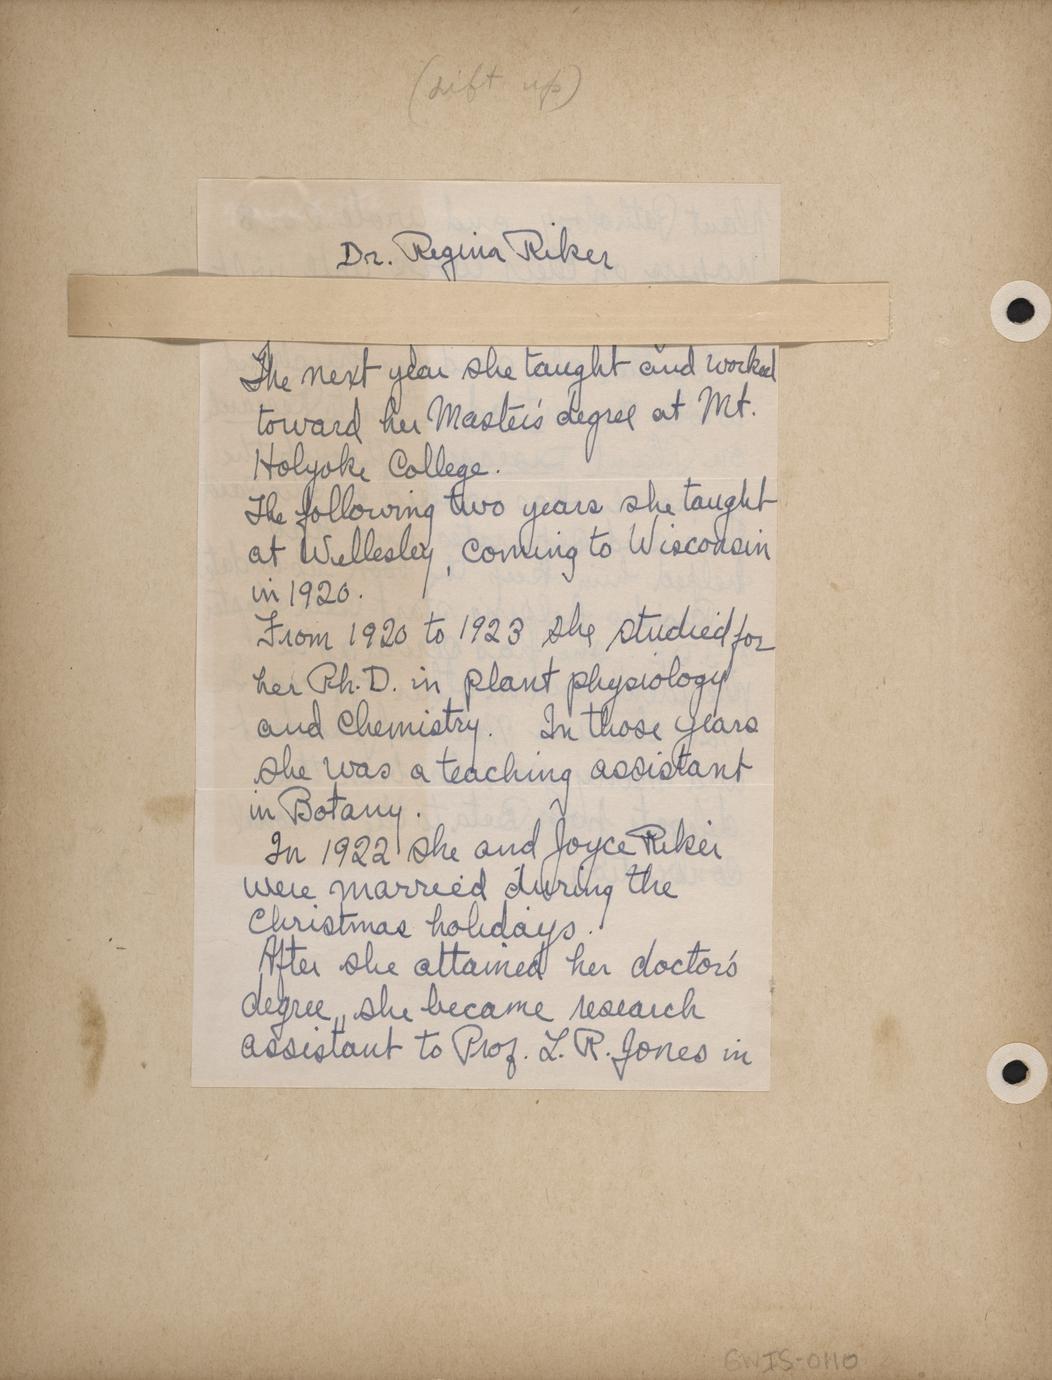 (Lift up)
Dr. Regina Riker
The next year she taught and worked
toward her Master's degree at Mt.
Holyoke College.
The following two years she taught
at Wellesley, coming to Wisconsin
in 1920.
From 1920 to 1923 she studied for
her Ph.D. in plant physiology
and Chemistry. In those years
she was a teaching assistant
in Botany.
In 1922 she and Joyce Riker
were married during the
Christmas holidays.
After she attained her doctor's
degree, she became research
assistant to Prof. L. R. Jones in
GWIS-0110